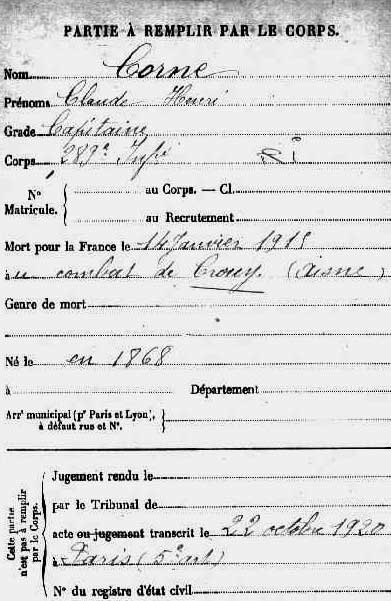 PARTIE À REMPLIR PAR LE CORPS.
Nom Corne
Prénoms Claude Henri
Grade Capitaine
Corps 289e Infie RI
No Matricule. { au Corps. — Cl.
au Recrutement
Mort pour la France le 14 Janvier 1915
au combat de Crouy (Aisne)
Genre de mort
Né le en 1868
à Département
Arrt municipal (pr Paris et Lyon), à défaut rue et No.
Cette partie n'est pas à remplir par le Corps.
Jugement rendu le
par le Tribunal de
acte ou jugement transcrit le 22 octobre 1920
à Paris (5e art)
No du registre d'état civil